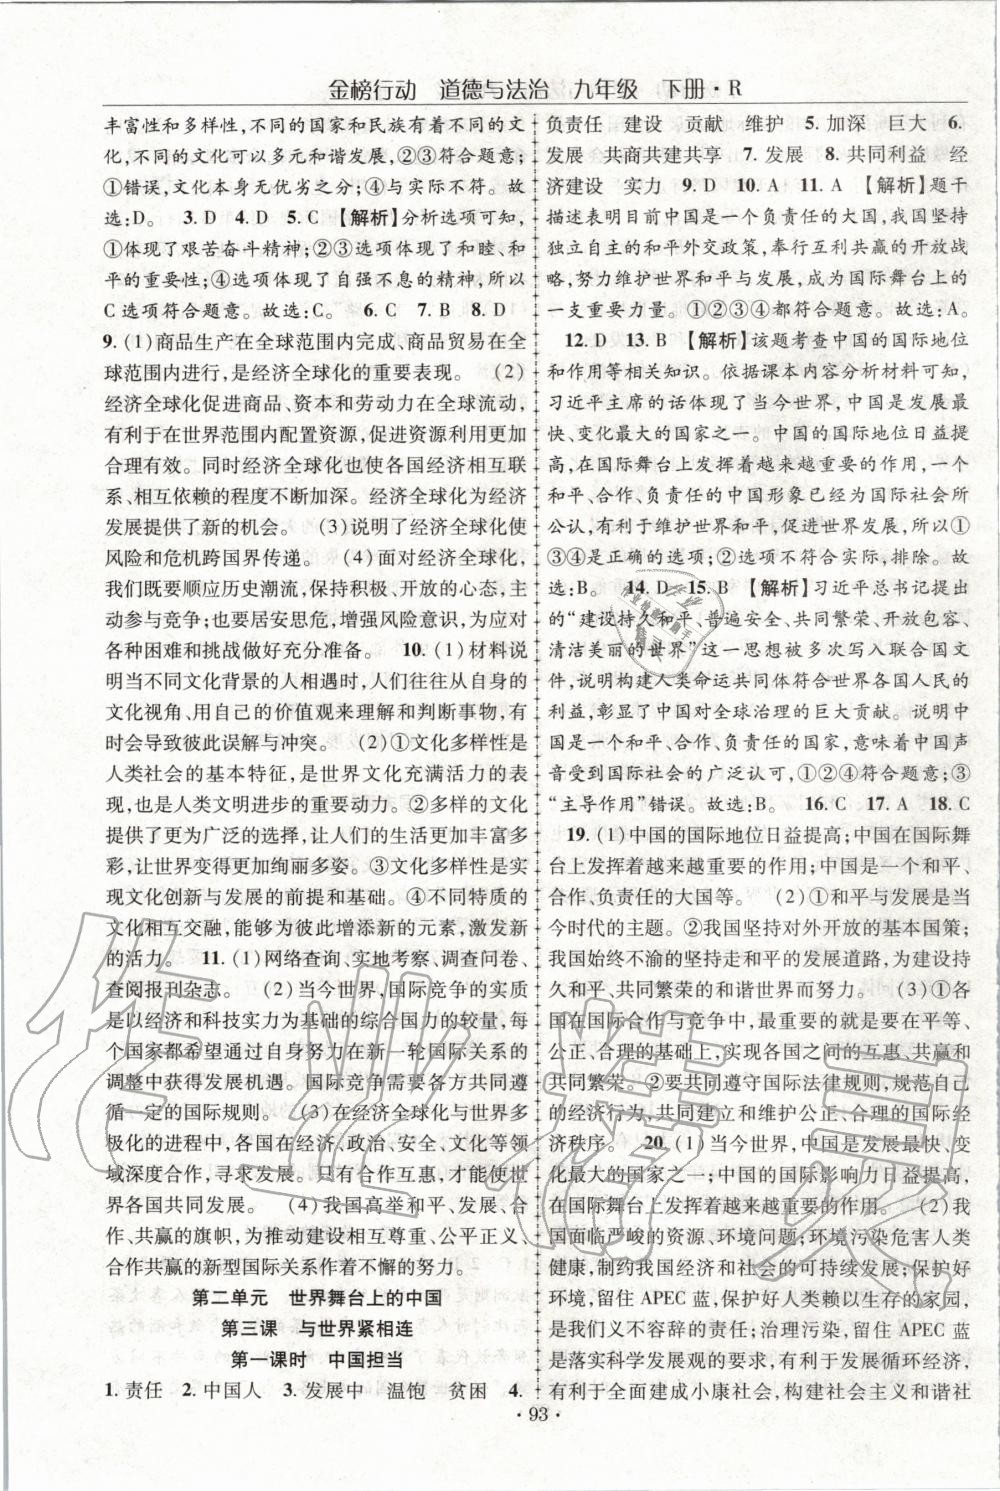 金榜行动　道德与法治　九年级　下册·R
丰富性和多样性,不同的国家和民族有着不同的文
化,不同的文化可以多元和谐发展,②③符合题意;
①错误,文化本身无优劣之分;④与实际不符。故
选:D。 3. D 4. D 5. C 【解析】分析选项可知,
①体现了艰苦奋斗精神;②③选项体现了和睦、和
平的重要性;④选项体现了自强不息的精神,所以
C选项符合题意。故选:C。 6. C 7. B 8. D
9. (1)商品生产在全球范围内完成、商品贸易在全
球范围内进行,是经济全球化的重要表现。 (2)
经济全球化促进商品、资本和劳动力在全球流动,
有利于在世界范围内配置资源,促进资源利用更加
合理有效。同时经济全球化也使各国经济相互联
系、相互依赖的程度不断加深。经济全球化为经济
发展提供了新的机会。 (3)说明了经济全球化使
风险和危机跨国界传递。 (4)面对经济全球化,
我们既要顺应历史潮流,保持积极、开放的心态,主
动参与竞争;也要居安思危,增强风险意识,为应对
各种困难和挑战做好充分准备。 10. (1)材料说
明当不同文化背景的人相遇时,人们往往从自身的
文化视角、用自己的价值观来理解和判断事物,有
时会导致彼此误解与冲突。 (2)①文化多样性是
人类社会的基本特征,是世界文化充满活力的表
现,也是人类文明进步的重要动力。②多样的文化
提供了更为广泛的选择,让人们的生活更加丰富多
彩,让世界变得更加绚丽多姿。③文化多样性是实
现文化创新与发展的前提和基础。④不同特质的
文化相互交融,能够为彼此增添新的元素,激发新
的活力。 11. (1)网络查询、实地考察、调查问卷、
查阅报刊杂志。 (2)当今世界,国际竞争的实质
是以经济和科技实力为基础的综合国力的较量,每
个国家都希望通过自身努力在新一轮国际关系的
调整中获得发展机遇。国际竞争需要各方共同遵
循一定的国际规则。 (3)在经济全球化与世界多
极化的进程中,各国在经济、政治、安全、文化等领
域深度合作,寻求发展。只有合作互惠,才能使世
界各国共同发展。 (4)我国高举和平、发展、合
作、共赢的旗帜,为推动建设相互尊重、公平正义、
合作共赢的新型国际关系作着不懈的努力。
第二单元　世界舞台上的中国
第三课　与世界紧相连
第一课时　中国担当
1. 责任 2. 中国人 3. 发展中 温饱 贫困 4.
负责任 建设 贡献 维护 5. 加深 巨大 6.
发展 共商共建共享 7. 发展 8. 共同利益 经
济建设 实力 9. D 10. A 11. A 【解析】题干
描述表明目前中国是一个负责任的大国,我国坚持
独立自主的和平外交政策,奉行互利共赢的开放战
略,努力维护世界和平与发展,成为国际舞台上的
一支重要力量。①②③④都符合题意。故选:A。
12. D 13. B 【解析】该题考查中国的国际地位
和作用等相关知识。依据课本内容分析材料可知,
习近平主席的话体现了当今世界,中国是发展最
快、变化最大的国家之一。中国的国际地位日益提
高,在国际舞台上发挥着越来越重要的作用,一个
和平、合作、负责任的中国形象已经为国际社会所
公认,有利于维护世界和平,促进世界发展,所以①
③④是正确的选项;②选项不符合实际,排除。故
选:B。 14. D 15. B 【解析】习近平总书记提出
的“建设持久和平、普遍安全、共同繁荣、开放包容、
清洁美丽的世界”这一思想被多次写入联合国文
件,说明构建人类命运共同体符合世界各国人民的
利益,彰显了中国对全球治理的巨大贡献。说明中
国是一个和平、合作、负责任的国家,意味着中国声
音受到国际社会的广泛认可,①②④符合题意;③
“主导作用”错误。故选:B。 16. C 17. A 18. C
19. (1)中国的国际地位日益提高;中国在国际舞
台上发挥着越来越重要的作用;中国是一个和平、
合作、负责任的大国等。 (2)①和平与发展是当
今时代的主题。②我国坚持对外开放的基本国策;
我国始终不渝的坚持走和平的发展道路,为建设持
久和平、共同繁荣的和谐世界而努力。 (3)①各
国在国际合作与竞争中,最重要的就是要在平等、
公正、合理的基础上,实现各国之间的互惠、共赢和
共同繁荣。②要共同遵守国际法律规则,规范自己
的经济行为,共同建立和维护公正、合理的国际经
济秩序。 20. (1)当今世界,中国是发展最快、变
化最大的国家之一;中国的国际影响力日益提高,
在国际舞台上发挥着越来越重要的作用。 (2)我
国面临严峻的资源、环境问题;环境污染危害人类
健康,制约我国经济和社会的可持续发展;保护好
环境,留住 APEC 蓝,保护好人类赖以生存的家园,
是我们义不容辞的责任;治理污染,留住 APEC 蓝
是落实科学发展观的要求,有利于发展循环经济,
有利于全面建成小康社会,构建社会主义和谐社
·93·
作业精灵